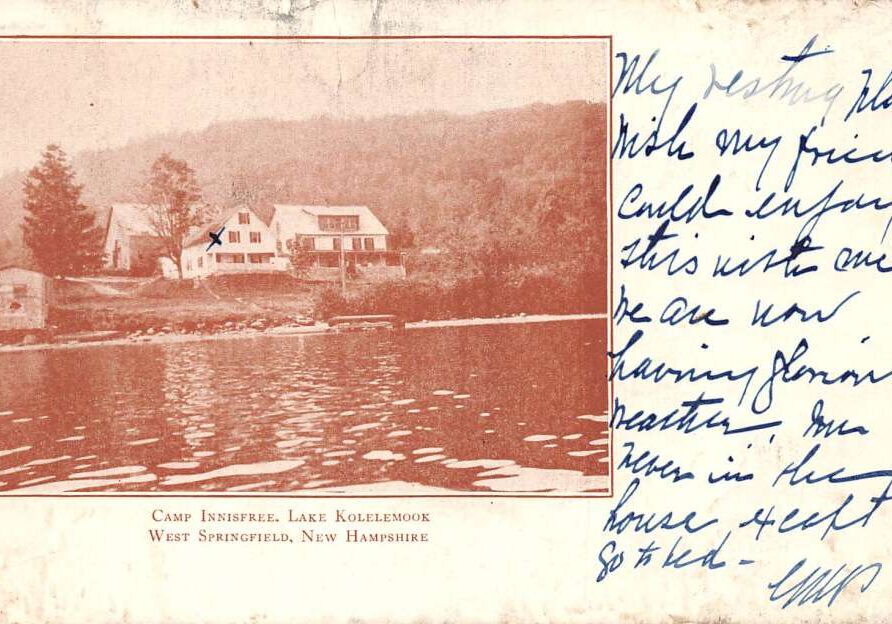 Camp Innisfree. Lake Kolelemook
West Springfield, New Hampshire
My resting
Wish my
could enjoy
this with me
We are now
having glorious
weather.
never in the
house except
go to bed -